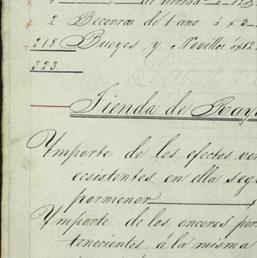 2 Becerras de 1 año á $ 3
218 Bueyes y Novillos á $ 12
323
Tienda de Raya
Ymporte de los efectos ven
ecsistentes en ella segu
pormenor
Ymporte de los enceres por
tenecientes á la misma